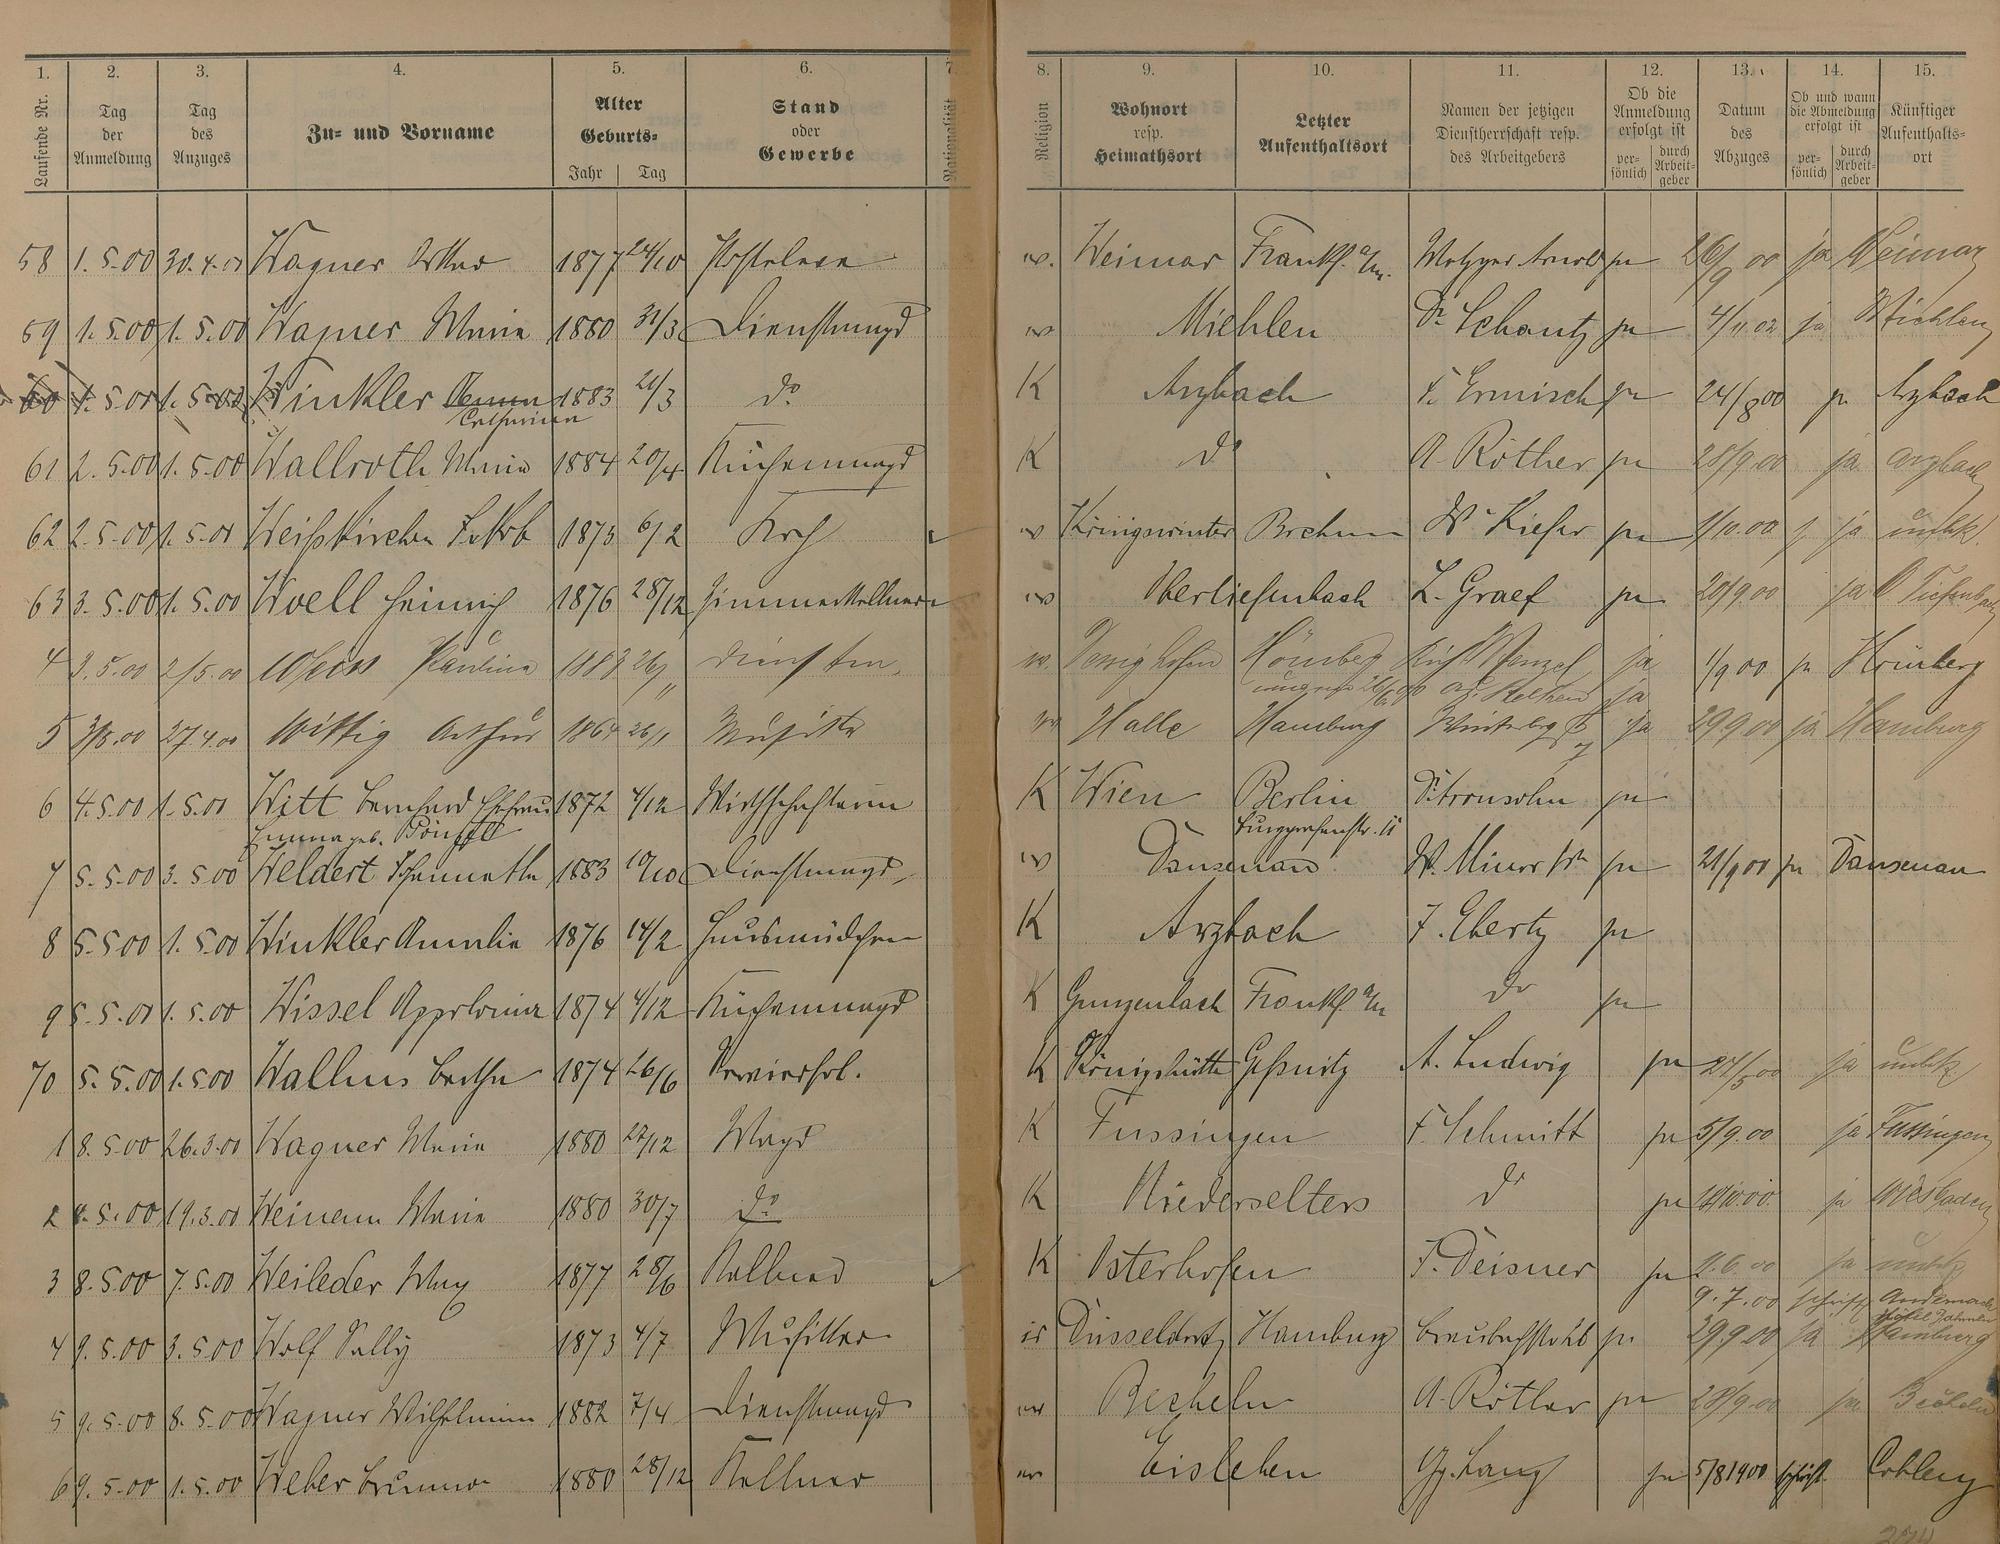 1. 2. 3. 4. 5. 6. 7. 8. 9. 10. 11. 12. 13. 14. 15.
Laufende Nr. Tag der Anmeldung Tag des Anzuges Zu- und Vorname Alter Geburts- Jahr Tag Stand oder Gewerbe Nationalität Religion Wohnort resp. Heimathsort Letzter Aufenthaltsort Namen der jetzigen Dienstherrschaft resp. des Arbeitgebers Ob die Anmeldung erfolgt ist per- sönlich durch Arbeit- geber Datum des Abzuges Ob und wann die Abmeldung erfolgt ist per- sönlich durch Arbeit- geber Künftiger Aufenthalts- ort
58 1.5.00 30.4.00 Wagner Arthur 1877 24/10 w. Weimar Frankf. a/m. Metzger Arnold ja 26/9 00 ja Weimar
59 1.5.00 1.5.00 Wagner Maria 1880 31/3 Dienstmagd w Miehlen Dr. Schantz ja 4/11.02 ja Miehlen
60 1.5.00 1.5.00 Winkler Catharina 1883 21/3 do K Arzbach F. Ermisch ja 24/8 00 ja Arzbach
61 2.5.00 1.5.00 Wallroth Maria 1884 20/4 Küchenmagd K do A. Röther ja 28/9.00 ja Arzbach
62 2.5.00 1.5.00 Weißkirchen Jakob 1873 6/2 Koch w Königswinter W. Kiefer ja 1/10.00 ja unbk.
63 3.5.00 1.5.00 Woell Heinrich 1876 28/12 Zimmerkellner w Obertiefenbach L. Graef ja 20/9.00 ja O Tiefenbach
4 3.5.00 2/5.00 Weiss Paulina 1883 26/11 w. Hömberg Wenzel ja 1/9 00 ja Hömberg
5 3/5.00 27.4.00 Wittig Arthur 1864 26/1 Musiker w Halle Hamburg ja 29 9.00 ja Hamburg
6 4.5.00 1.5.00 Witt Bernhard Ehefrau 1872 4/12 K Wien Berlin Dr. Aronsohn ja
Emma geb. Burggrafenstr. 11
7 5.5.00 3.5.00 Weldert 1883 19/10 Dienstmagd w Dausenau W. Minor ja 21/9 00 ja Dausenau
8 5.5.00 1.5.00 Winkler Amalie 1876 14/2 Hausmädchen K Arzbach J. Ebertz ja
9 5.5.00 1.5.00 Wissel Appolonia 1874 4/12 Küchenmagd K Gunzenbach Frankf. a/m do ja
70 5.5.00 1.5.00 Bertha 1874 26/6 K Königshütte A. Ludwig ja 27/5 00 ja unbk
1 8.5.00 26.3.00 Wagner Maria 1880 27/12 Magd K Fussingen F. Schmitt ja 5/9.00 ja Fussingen
2 8.5.00 19.3.00 Maria 1880 30/7 do K Niederselters do ja ja Wiesbaden
3 8.5.00 7.5.00 Weileder Max 1877 28/6 Kellner K Osterhofen F. Deisner ja 2.6.00 ja unbk
9.7.00 schriftl Andernach
4 9.5.00 3.5.00 Wolf Sally 1873 4/7 Musiker is Düsseldorf Hamburg ja 29 9.00 ja Hamburg
5 9.5.00 8.5.00 Wagner Wilhelmine 1882 7/4 Dienstmagd w Becheln A. Röther ja 28/9.00 ja Becheln
6 9.5.00 1.5.00 Weber Bruno 1880 28/12 Kellner w Eisleben Gg. Lang ja 5/8 1900 schriftl Coblenz